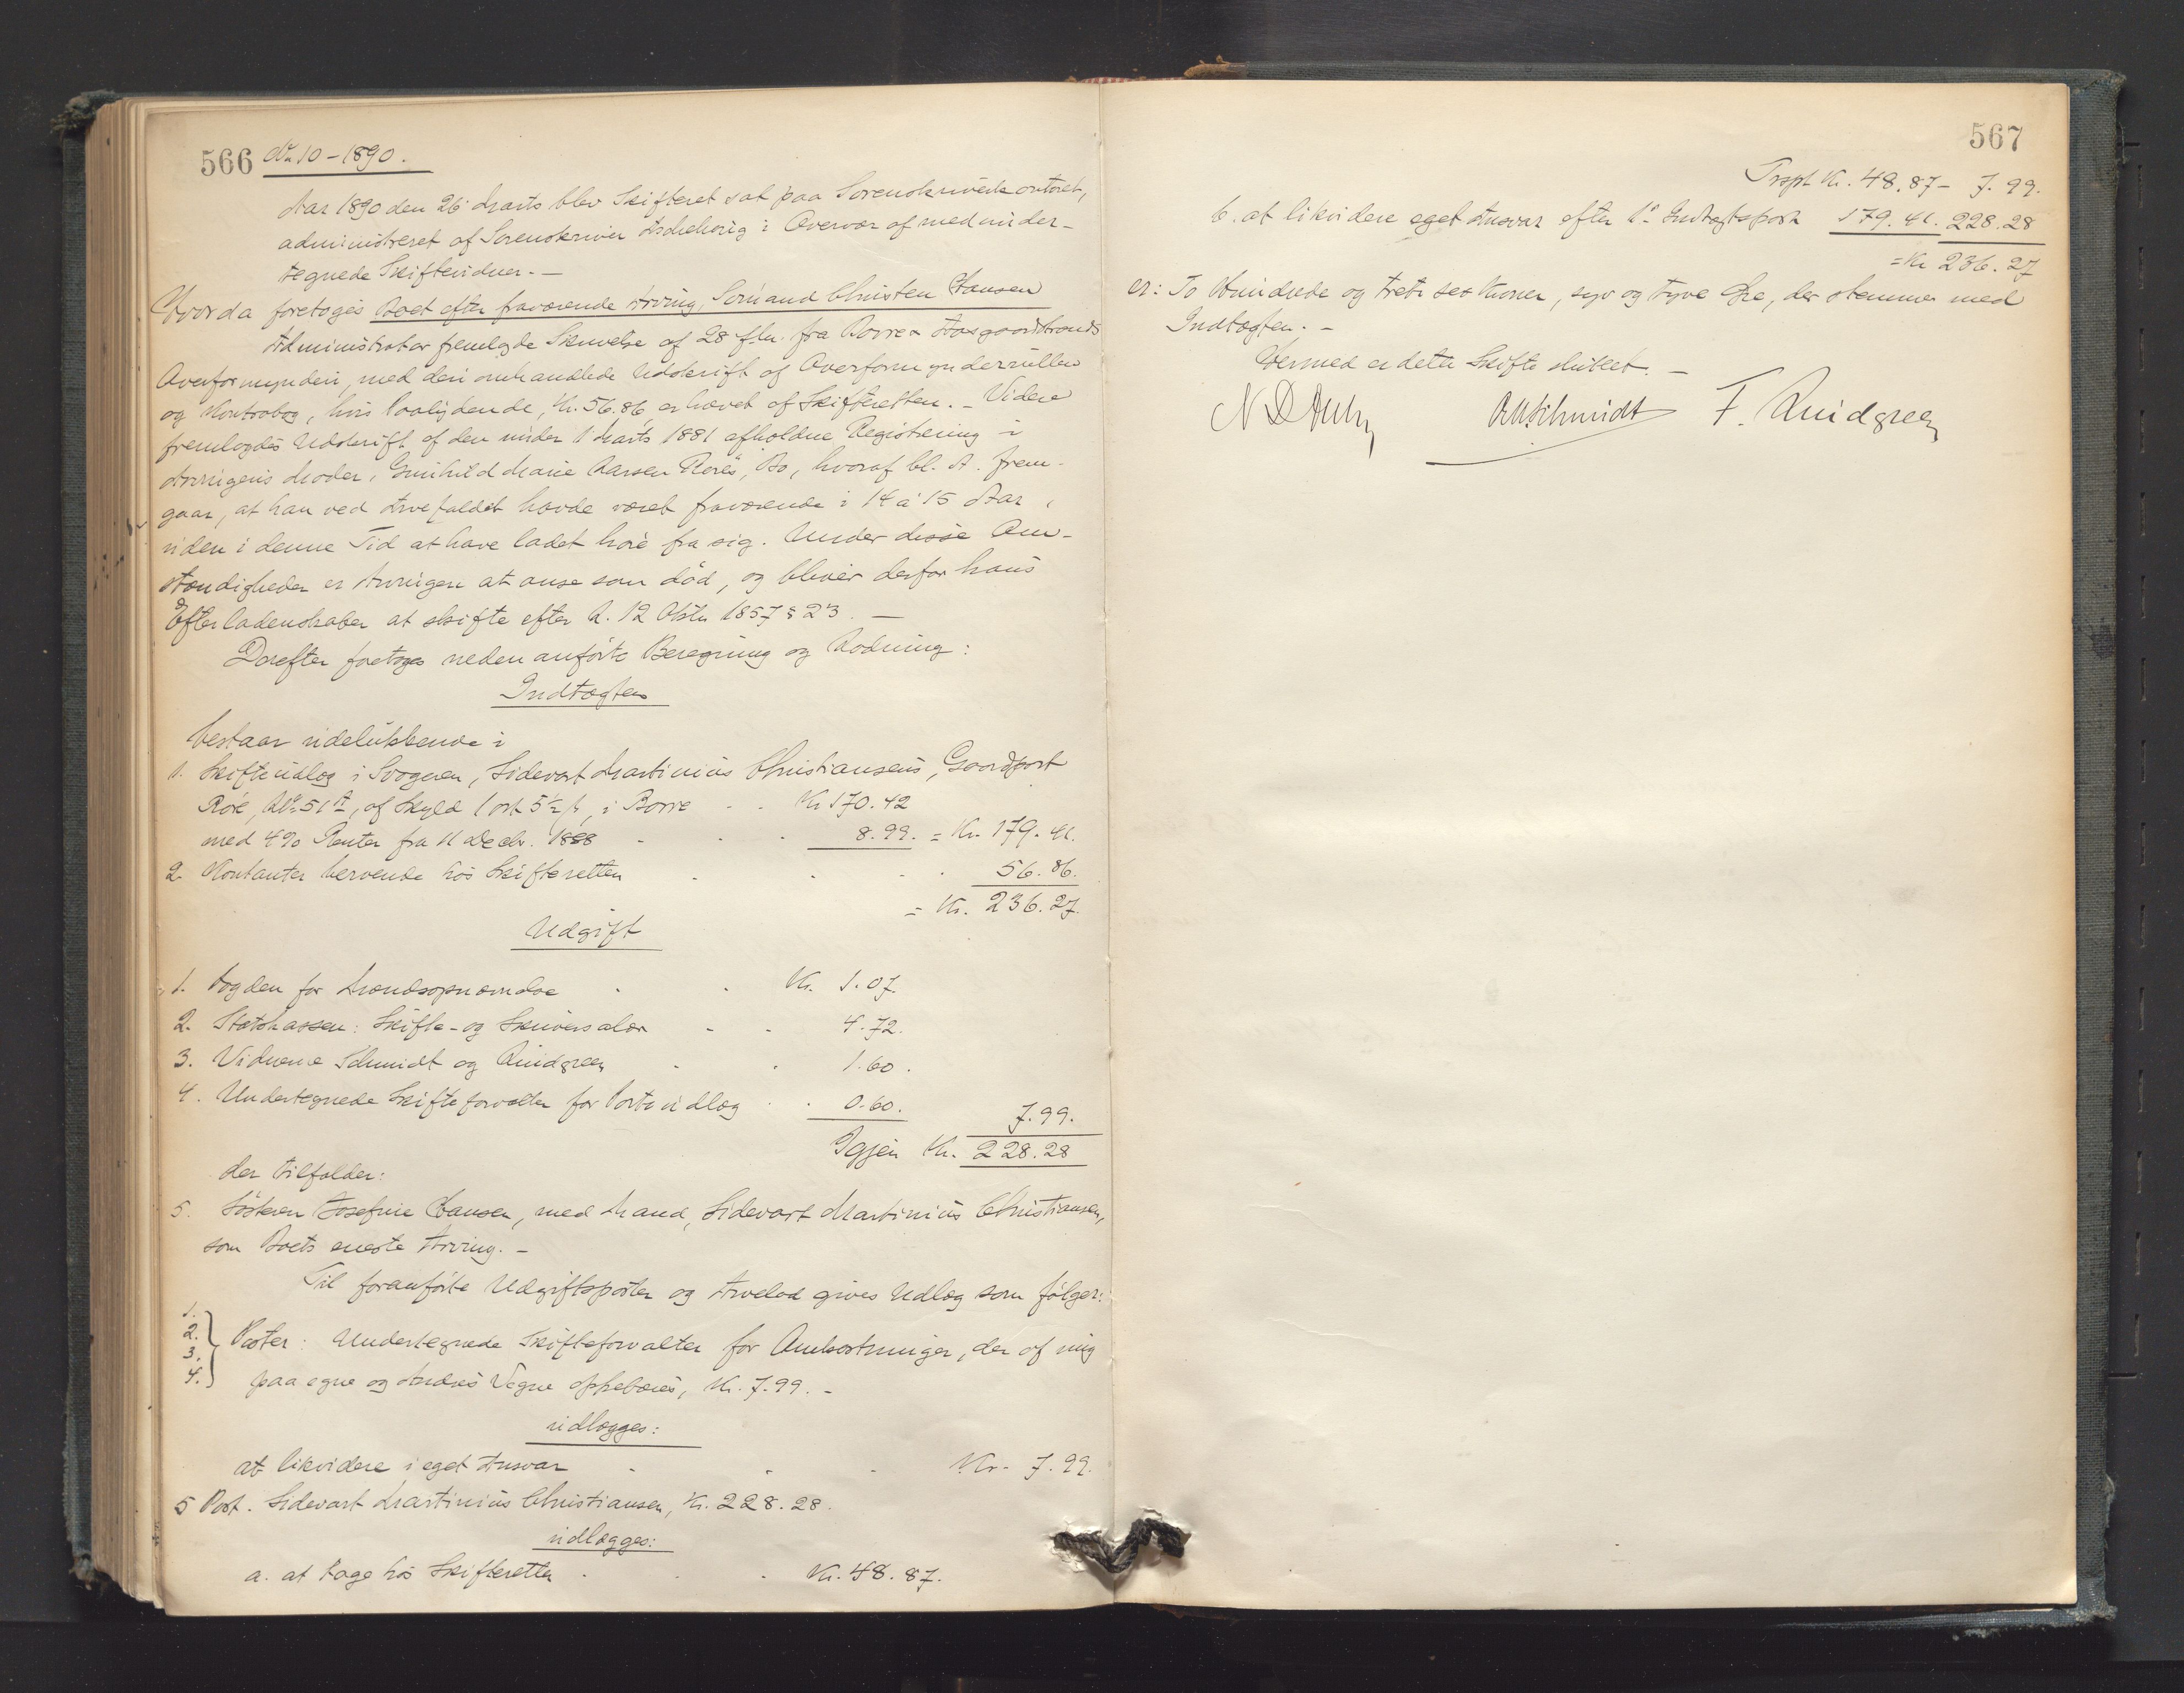 566 No 10 - 1890.
Aar 1890 den 26 Marts blev Skifteret sat paa Sorenskriverkontoret,
administreret af Sorenskriver Aschehoug i Overvær af medunder-
tegnede Skiftevidner. —
Hvorda foretoges Boet efter fraværende Arving, Sømand Christen Hansen
Administrator fremlagde Skrivelse af 28 f. M. fra Borre & Aasgaardstrands
Overformynderi, med deri omhandlede Udskrift af Overformynderrullen
og Kontrabog, hvis Paalydende, Kr. 56.86, er hævet af Skifteretten. – Videre
fremlagdes Udskrift af den under 1 Marts 1881 afholdne Registrering i
Arvingens Moder, Gunhild Marie Larsen Røre's, Bo, hvoraf bl. A. frem-
gaar, at han ved Arvefaldet havde været fraværende i 14 à 15 Aar,
uden i denne Tid at have ladet høre fra sig. Under disse Om-
stændigheder er Arvingen at anse som død, og bliver derfor hans
Efterladenskaber at skifte efter L. 12 Oktbr 1857 § 23. —
Derefter foretoges nedenanførte Beregning og Lodning:
Indtægten
bestaar udelukkende i
1. Skifteudlæg i Svogeren, Sidevart Martinius Christiansens, Gaardpart
Røre, No 51 a, af Skyld 1 ort 5 ½ ß, i Borre - - Kr 170.42
med 4% Renter fra 11 Decbr. 1888 - - - 8.99. = Kr. 179.41.
2. Kontanter beroende hos Skifteretten - - - - 56.86.
= Kr. 236.27.
Udgift
1. Fogden for Mændsopnævnelse - - Kr. 1.07.
2. Statskassen: Skifte- og Skriversalær - - 4.72.
3. Vidnerne Schmidt og Lindgreen - - 1.60.
4. Undertegnede Skifteforvalter for Portoudlæg - - 0.60. 7.99.
Igjen Kr. 228.28
der tilfalder:
5. Søsteren Josefine Hansen, med Mand, Sidevart Martinius Christiansen,
som Boets eneste Arving. –
Til foranførte Udgiftsposter og Arvelod gives Udlæg som følger:
1.
2.
3.
4.
Poster: Undertegnede Skifteforvalter for Omkostninger, der af mig
paa egne og Andres Vegne oppebæres, Kr. 7.99. –
udlægges:
at likvidere i eget Ansvar - - - Kr. 7.99.
5 Post. Sidevart Martinius Christiansen, Kr. 228.28.
udlægges:
a. at tage hos Skifteretten - - - Kr. 48.87.
567
Trspt Kr. 48.87 – 7.99.
b. at likvidere eget Ansvar efter 1ste Indtægtspost 179.41. 228.28
= Kr 236.27
er: To Hundrede og treti sex Kroner, syv og tyve Øre, der stemmer med
Indtægten. –
Hermed er dette Skifte sluttet. –
Schmidt F. Lindgreen